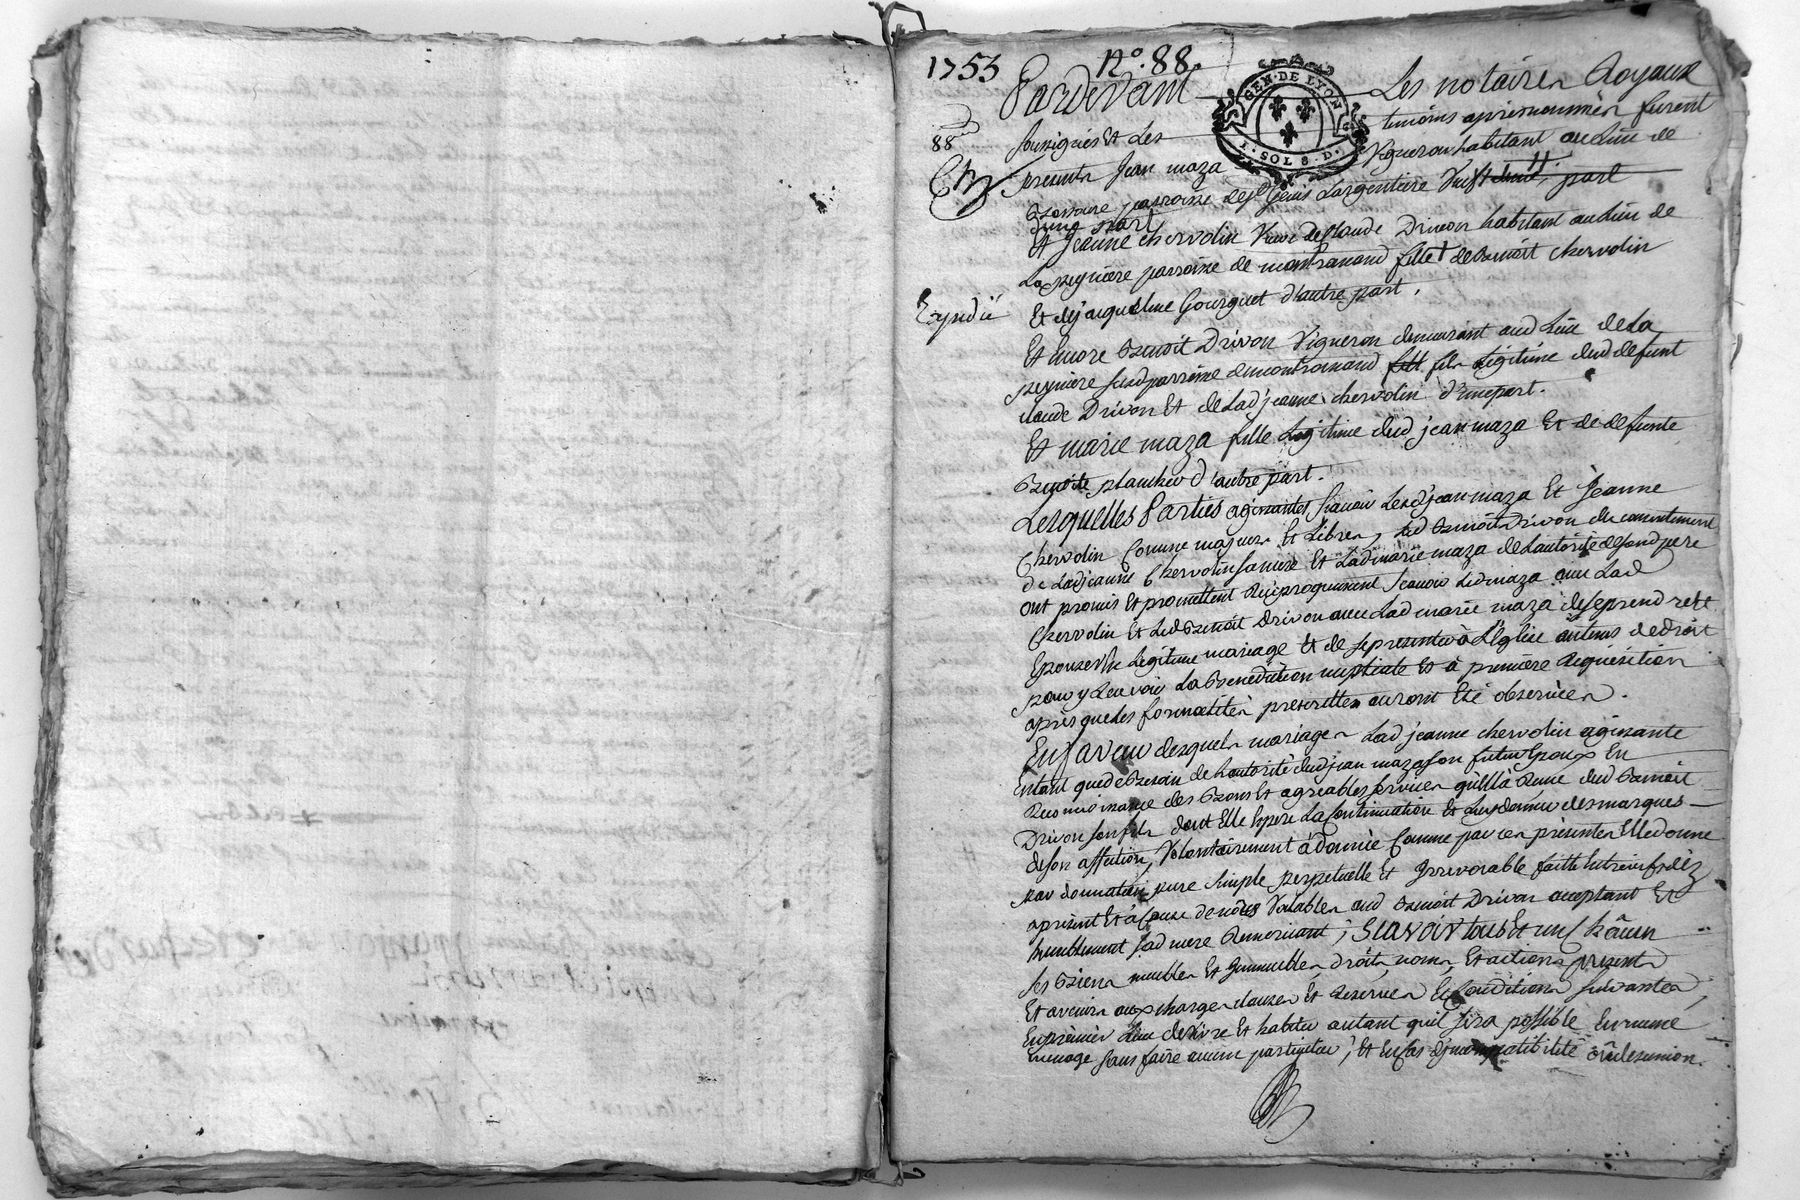 1753 N.° 88.
Pardevant Les notaires Royaux
GEN. DE LYON
1. SOL 8. D.
88
soussignés Et Les temoins apresnommés furent
presents Jean maza Vigneron habitant au Lieu de
parroisse de st Genis Largentiere part
d'une part
Et Jeanne chervolin Veuve de Claude Drivon habitant au Lieu de
La peyniere parroisse de montromand fille de Benoit chervolin
Expedié
Et de jaqueline Gourguet d'autre part.
Et Encore Benoit Drivon Vigneron demeurant aud Lieu de La
peyniere susd parroisse de montromand fils Legitime dud defunt
claude Drivon Et de Lad jeanne chervolin d'une part.
Et marie maza fille Legitime dud jean maza Et de defunte
Benoite planchu d'autre part.
Lesquelles Parties agissantes sçavoir Lesd jean maza Et Jeanne
Chervolin Comme majeurs Et Libres, Led Benoit Drivon du consentement
de Lad jeanne Chervolin sa mere Et Lad marie maza de Lautorité de sond pere
ont promis Et promettent Reciproquement sçavoir Led maza avec Lad
Chervolin Et Led Benoit Drivon avec Lad marie maza de se prendre Et
Epouser En Legitime mariage Et de se presenter à L'Eglise au tems de droit
pour y recevoir La Benediction nuptiale Et à premiere Requisition
après que les formalités prescrittes auront Eté observées.
En faveur desquels mariages Lad jeanne chervolin agissante
Entant que de Besoin de Lautorité dud jean maza son futur Epoux En
Reconnoissance des Bons Et agreables services qu'elle a Receu dud Benoit
Drivon son fils dont Elle Espere La Continuation Et Luy donner des marques
de son affection, Volontairement a donné Comme par ces présentes Elle donne
par donnation pure simple perpetuelle Et Irrevocable faitte Entre vifs dès
apresent Et a Cause de nôces Valable aud Benoit Drivon acceptant Et
humblement sad mere Remerciant, Sçavoir tous Et un chacun
ses Biens meubles Et Immeubles droits, noms, Et actions presents
Et avenir aux charges clauses Et Reserves Et Conditions suivantes,
En premier Lieu de vivre Et habiter autant quil sera possible En meme
menage sans faire aucun particulier, Et En cas d'incompatibilité ou desunion.